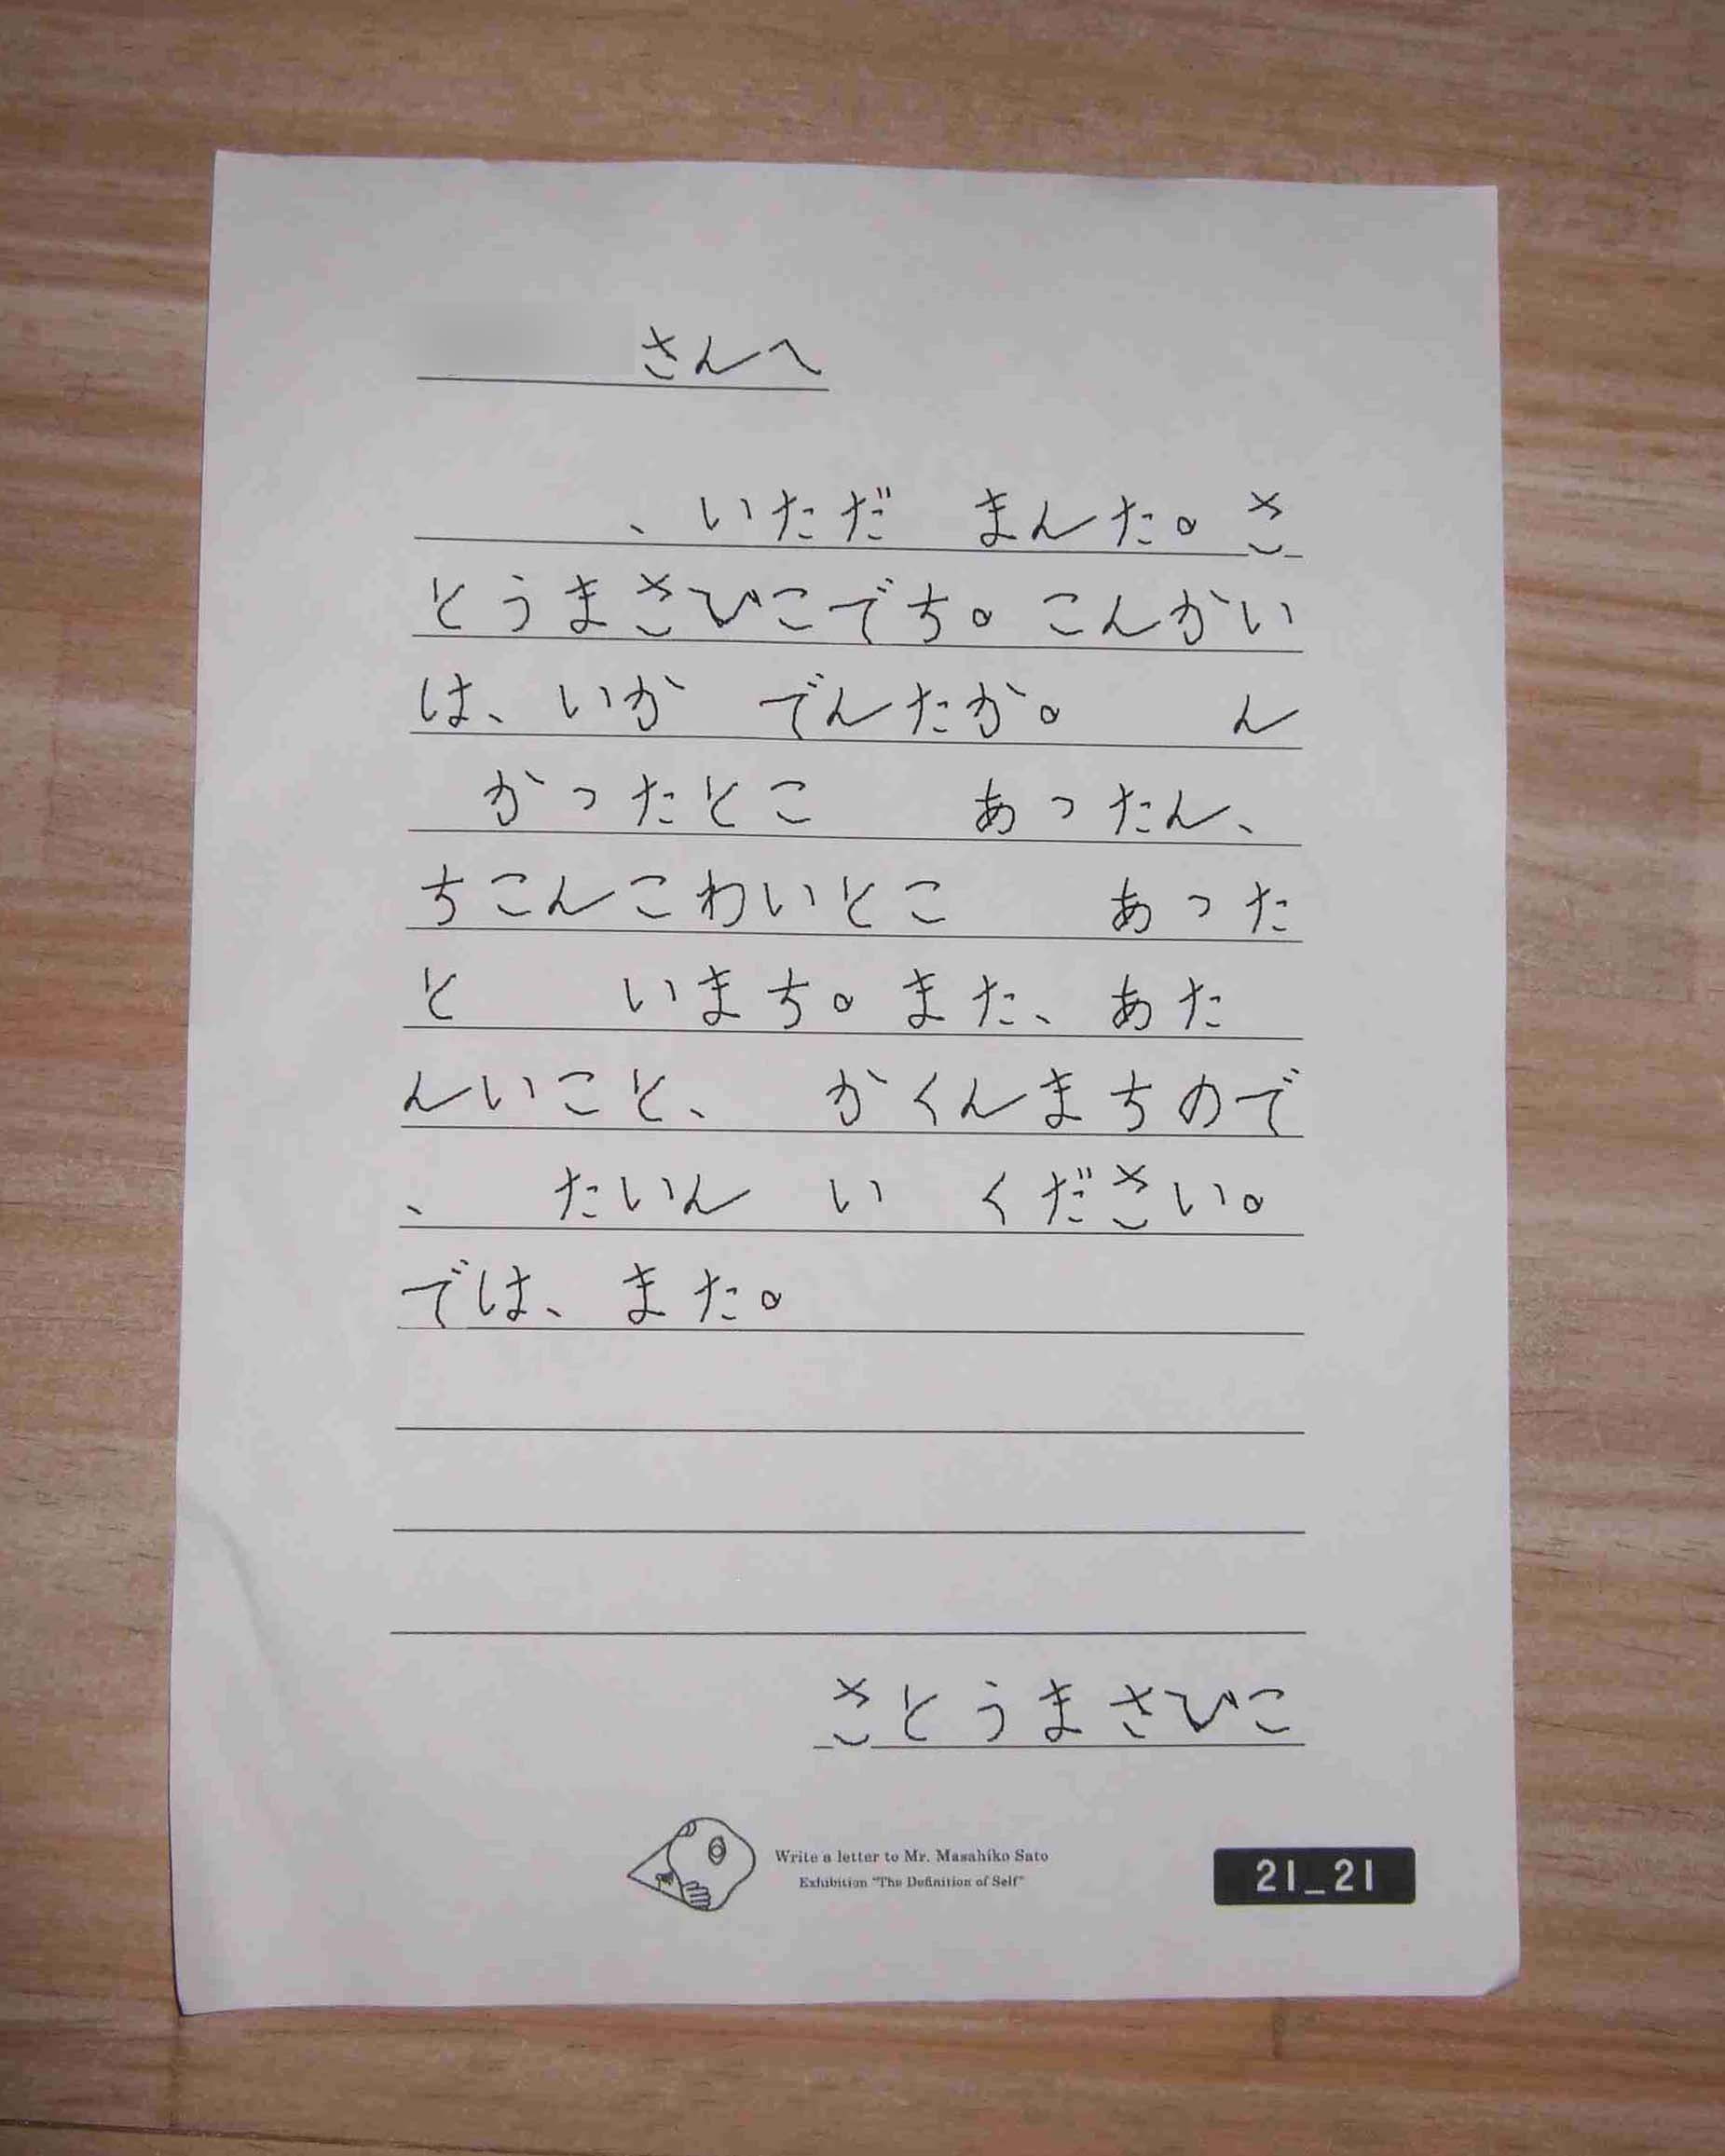 さんへ
、いただ　まんた。さ
とうまさひこでち。こんかい
は、いか　でんたか。　　ん
　かったとこ　　あったん、
ちこんこわいとこ　　あった
と　　いまち。また、あた
んいこと、　かくんまちので
、　たいん　い　ください。
では、また。
さとうまさひこ
Write a letter to Mr. Masahiko Sato
Exhibition "The Definition of Self"
21_21